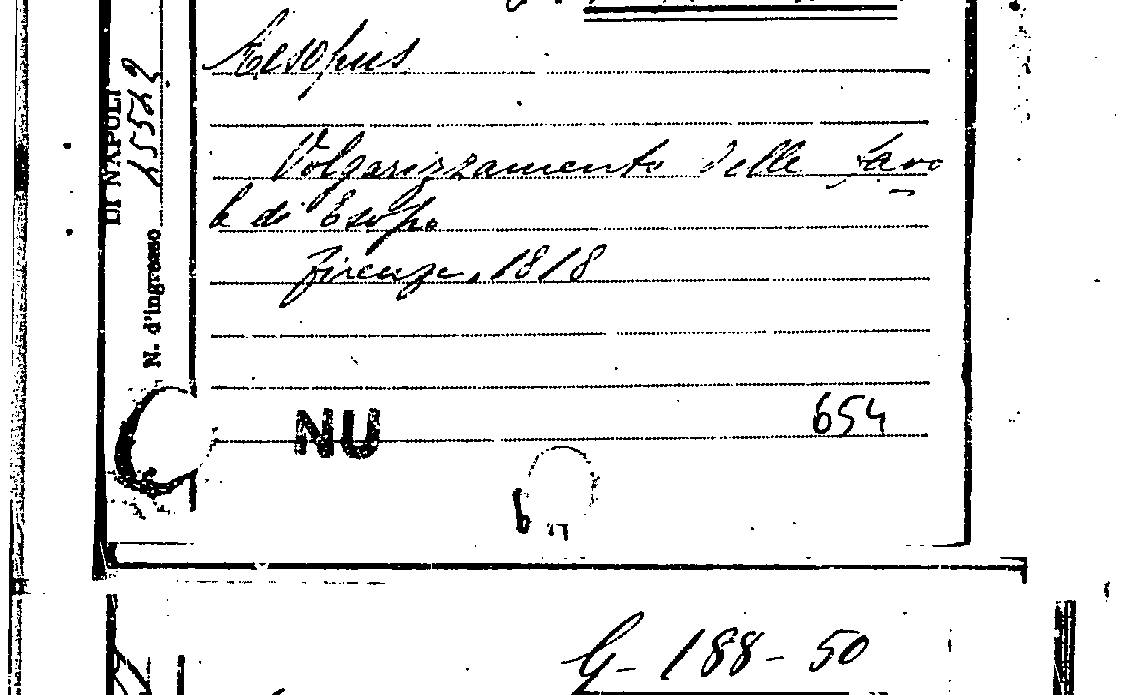 Aesopus
Volgarizzamento delle favo
le di Esopo
Firenze, 1818
654
NU
DI NAPOLI
N. d'ingresso
G- 188- 50